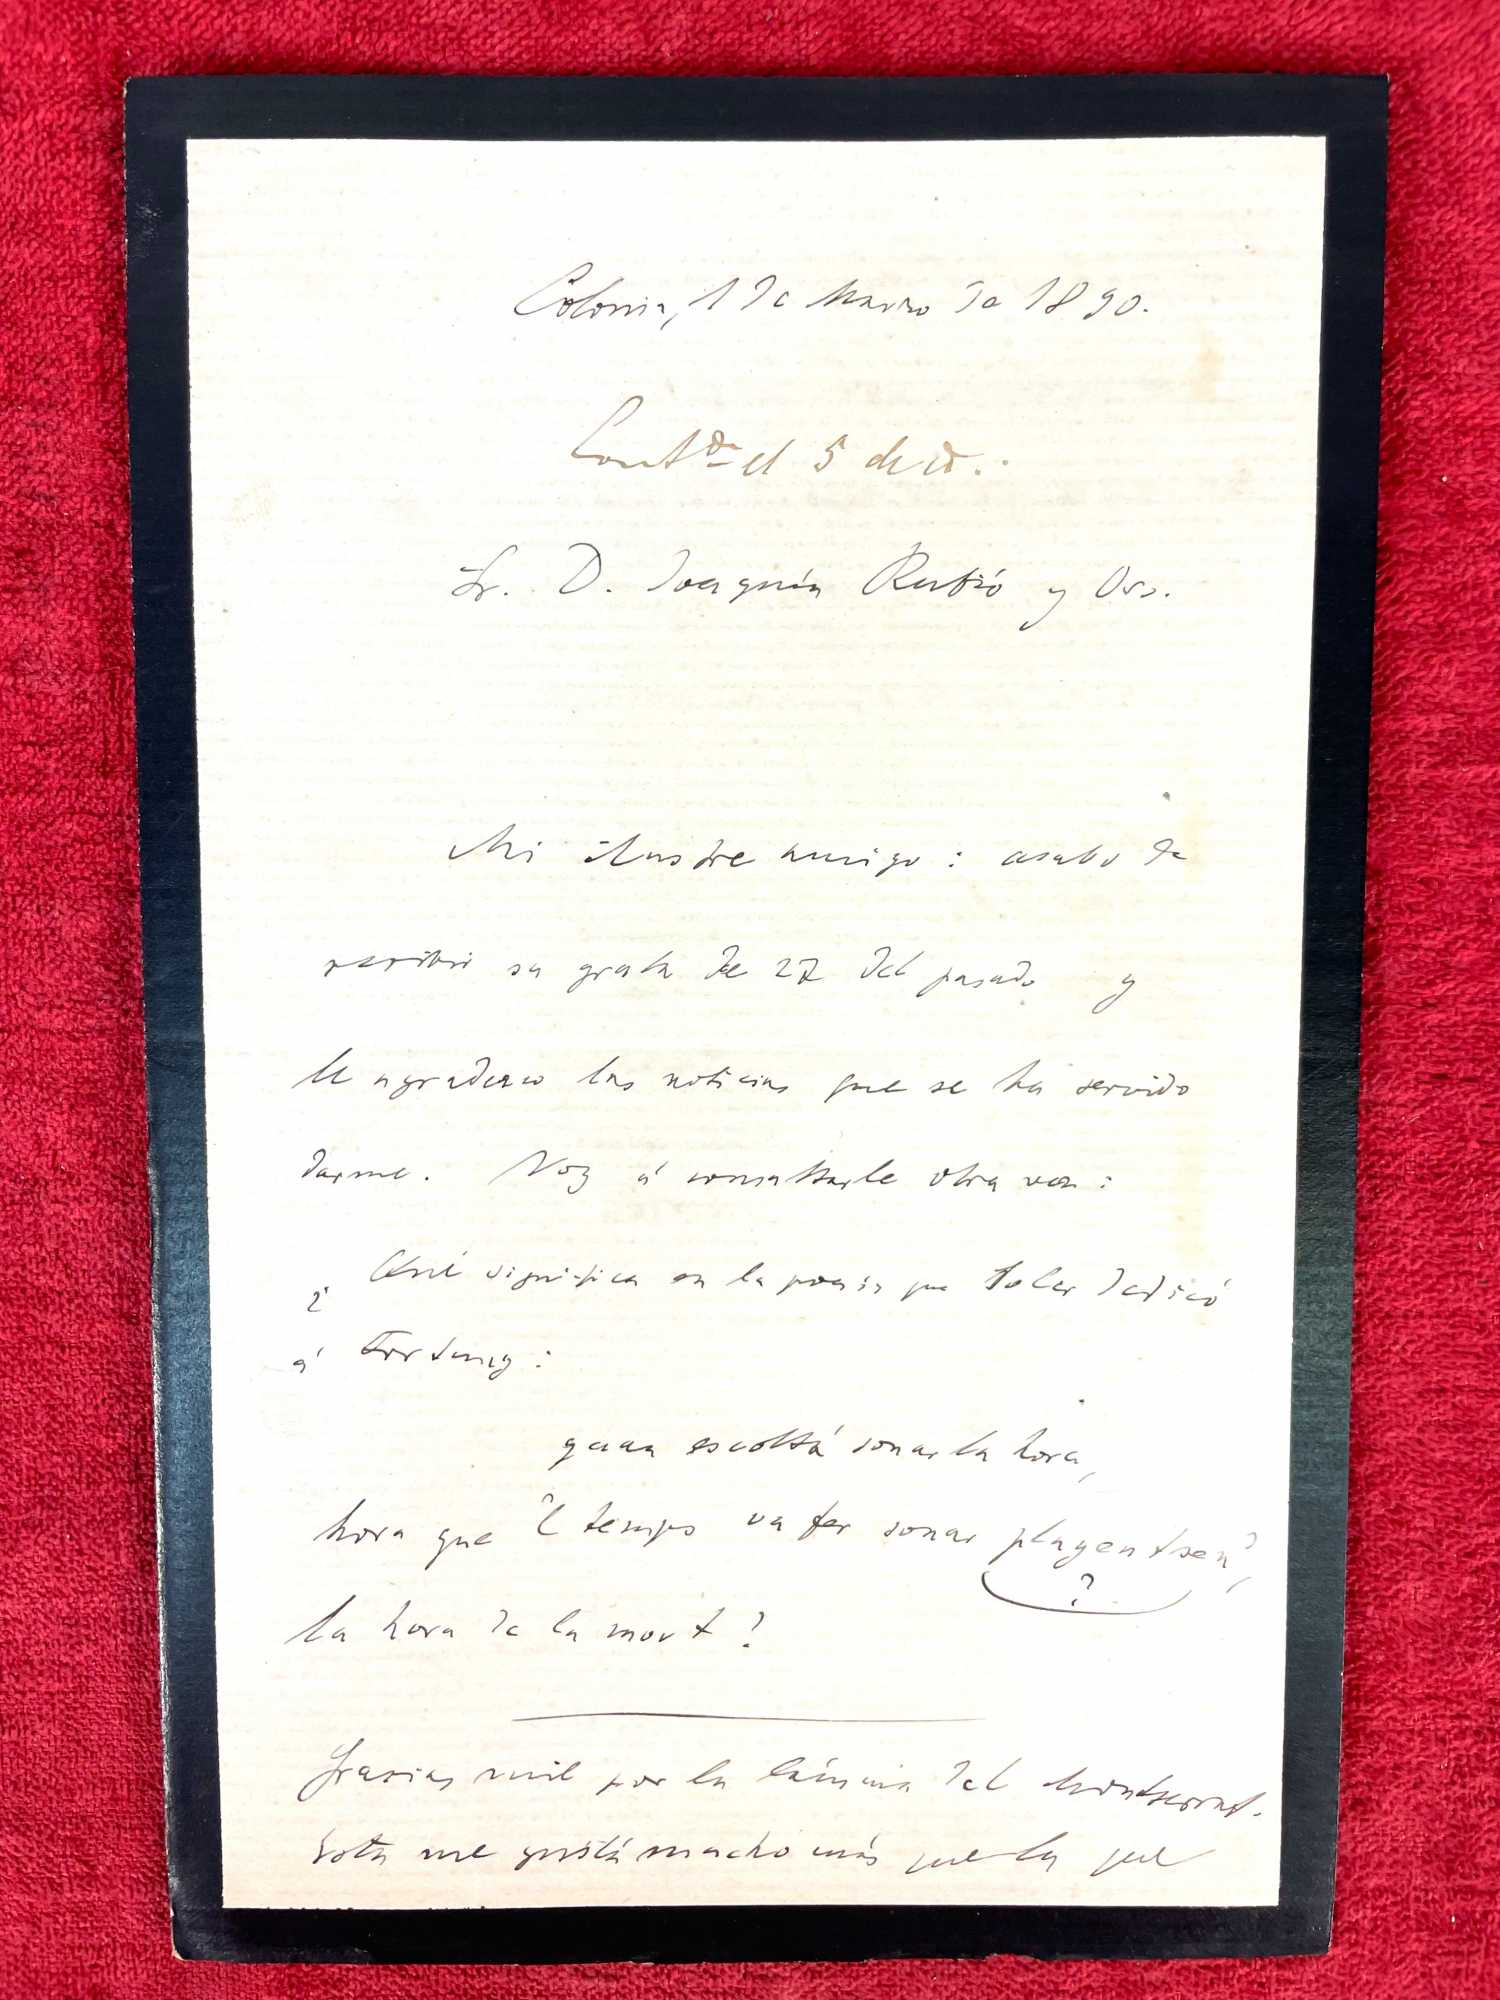 Colonia, 1 de Marzo de 1890.
Contda el 5 de id.
Sr. D. Joaquín Rubió y Ors.
Mi ilustre amigo: acabo de
recibir su grata de 27 del pasado y
le agradezco las noticias que se ha servido
darme. Voy á consultarle otra vez:
¿Qué significa en la poesía que Soler dedicó
á Fortuny:
quan escoltá sonar la hora,
hora que 'l temps va fer sonar planyentsen,
?
la hora de la mort?
Gracias mil por la lámina del Montserrat.
Esta me gusta mucho más que la que